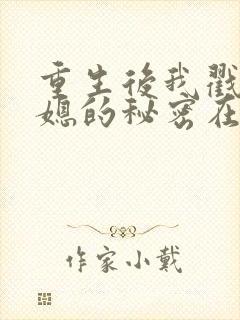 重生後我戳
媳的秘密在
作家小戴